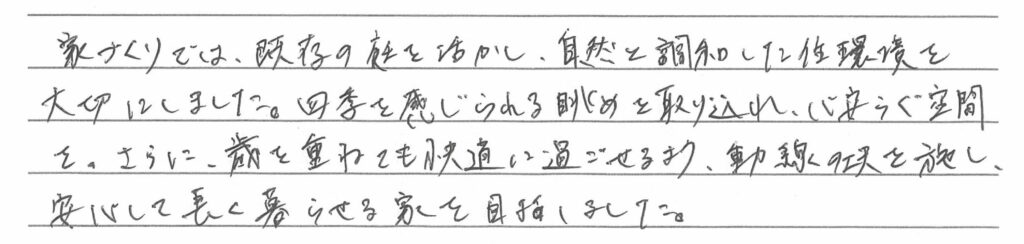 家づくりでは、既存の庭を活かし、自然と調和した住環境を
大切にしました。四季を感じられる眺めを取り込れ、心安らぐ空間
を。さらに、歳を重ねても快適に過ごせるよう、動線の工夫を施し、
安心して長く暮らせる家を目指しました。